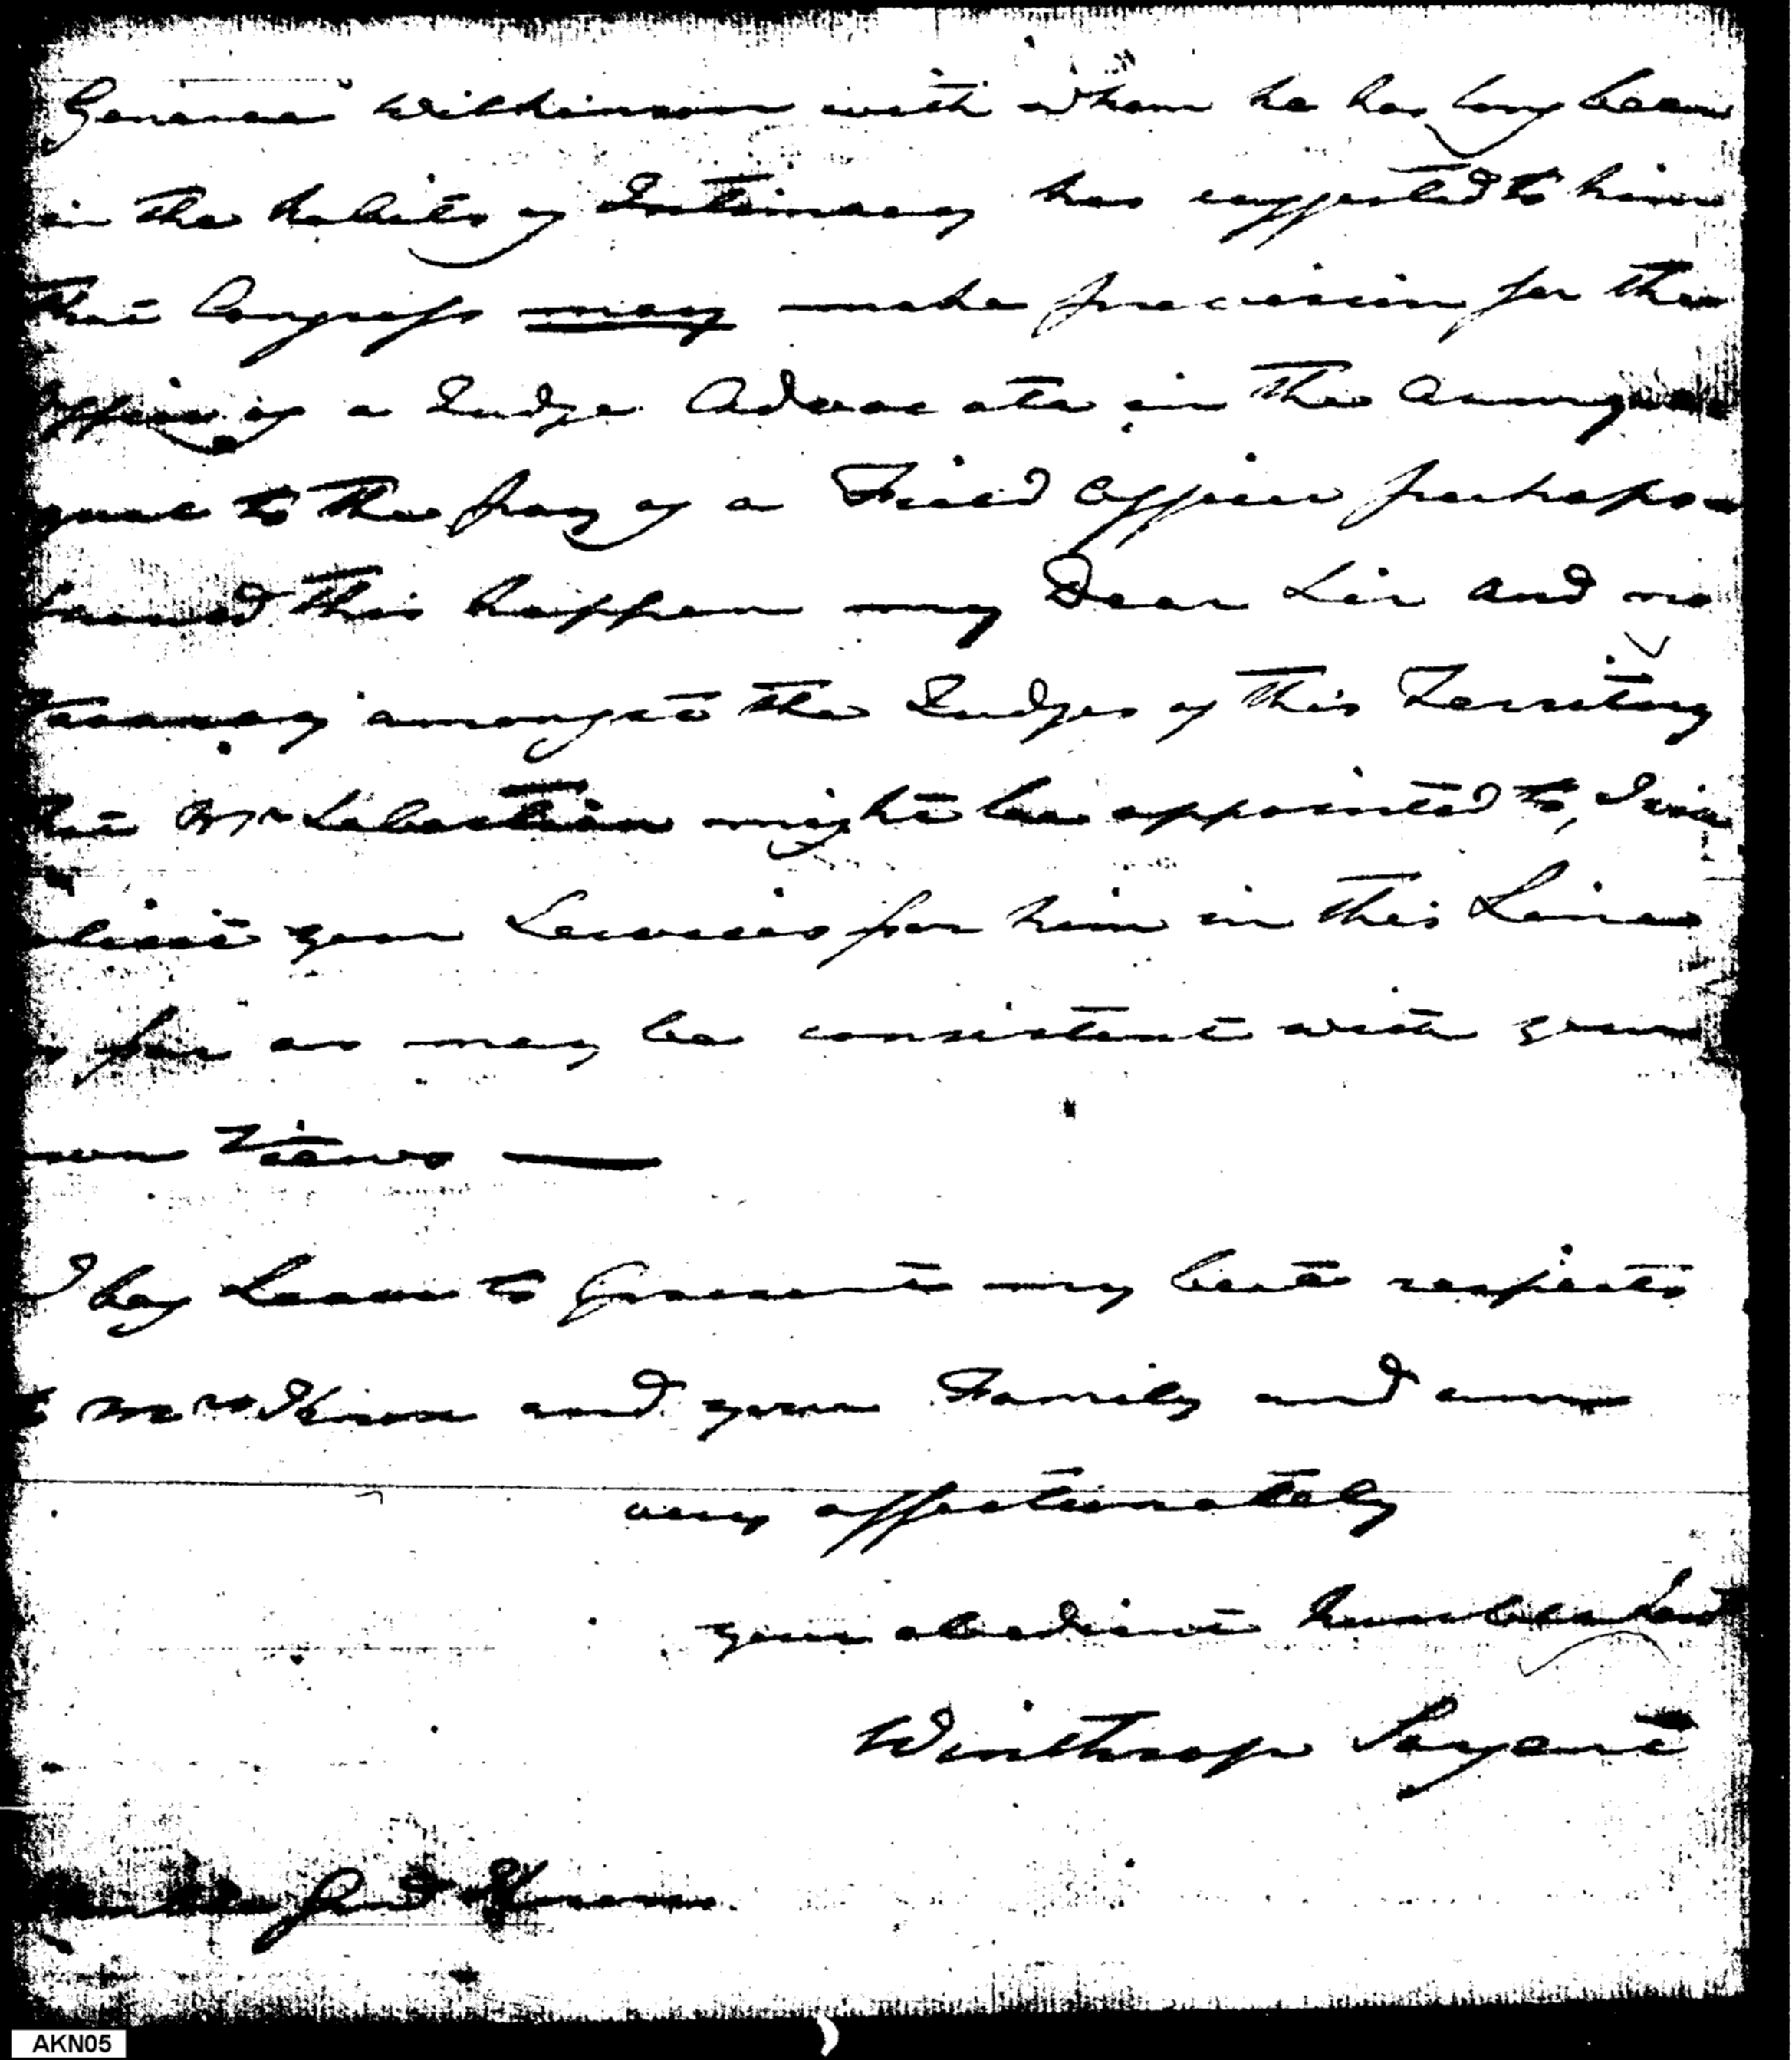 General Wilkinson with whom he has long been
in the habits of Intimacy has suggested to him
that Congress may make provision for the
Office of a Judge Advocate in the Army
equal to the pay of a Field Officer perhaps
should this happen my Dear Sir and no
Vacancy amongst the Judges of this Territory
that Mr Sebastian might be appointed to, I will
solicit your Services for him in this Line
as far as may be consistent with your
own Views —
I beg Leave to present my best respects
to Mrs Knox and your Family and am
very affectionately
your obedient humble Servt
Winthrop Sargent
Genl Knox
AKN05